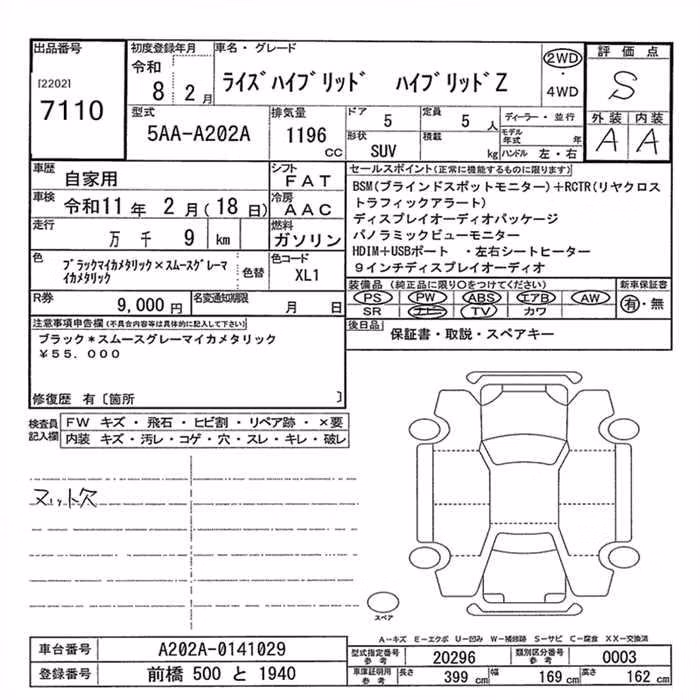 出品番号
[2202]
7110
初度登録年月
令和
8 2 月
車名・グレード
ライズハイブリッド ハイブリッドZ
2WD
・
4WD
評価点
S
外装 内装
A A
型式
5AA-A202A
排気量
1196
CC
ドア
5
定員
5 人
形状
SUV
積載
kg
ディーラー・並行
モデル年式 年
ハンドル 左・右
車歴
自家用
シフト
FAT
車検 令和11年 2月(18日)
冷房
AAC
走行
万 千 9 km
燃料
ガソリン
色
ブラックマイカメタリック×スムースグレーマ
イカメタリック
色替
色コード
XL1
R券
9,000 円
名変通知期限
月 日
セールスポイント(正常に機能するものに限ります)
BSM(ブラインドスポットモニター)+RCTR(リヤクロス
トラフィックアラート)
ディスプレイオーディオパッケージ
パノラミックビューモニター
HDIM+USBポート ・左右シートヒーター
9インチディスプレイオーディオ
装備品(純正品に限り○をつけてください)
PS PW ABS エアB AW
SR ナビー TV カワ
新車保証書
有・無
後日品
保証書・取説・スペアキー
注意事項申告欄(不具合内容等は具体的に記入して下さい)
ブラック*スムースグレーマイカメタリック
¥55.000
修復歴 有〔箇所 〕
検査員
記入欄
FW キズ・飛石・ヒビ割・リペア跡・×要
内装 キズ・汚レ・コゲ・穴・スレ・キレ・破レ
ヌット欠
スペア
A-キズ E-エクボ U-凹み W-補修跡 S-サビ C-腐食 XX-交換済
車台番号
A202A-0141029
登録番号
前橋 500 と 1940
型式指定番号
参考
20296
類別区分番号
参考
0003
車庫証明用
参考
長さ 399 cm
幅 169 cm
高さ 162 cm